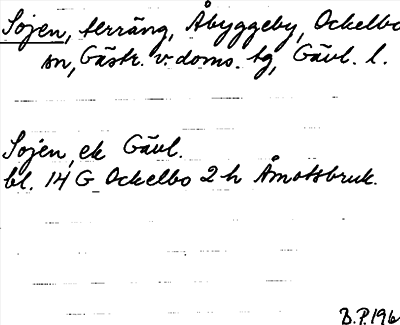 Sojen, terräng, Åbyggeby, Ockelbo
sn, Gästr. v. doms. tg, Gävl. l.
Sojen, ek Gävl.
bl. 14 G Ockelbo 2 h Åmotsbruk.
B.P.196